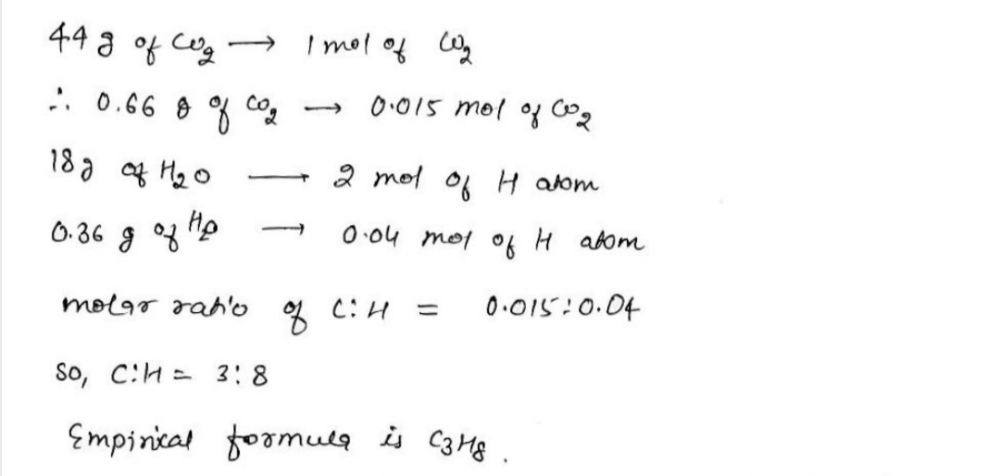 44 g of CO₂ → 1 mol of CO₂
∴ 0.66 g of CO₂ → 0.015 mol of CO₂
18 g of H₂O → 2 mol of H atom
0.36 g of H₂O → 0.04 mol of H atom
molar ratio of C:H = 0.015:0.04
so, C:H = 3:8
Empirical formula is C₃H₈.